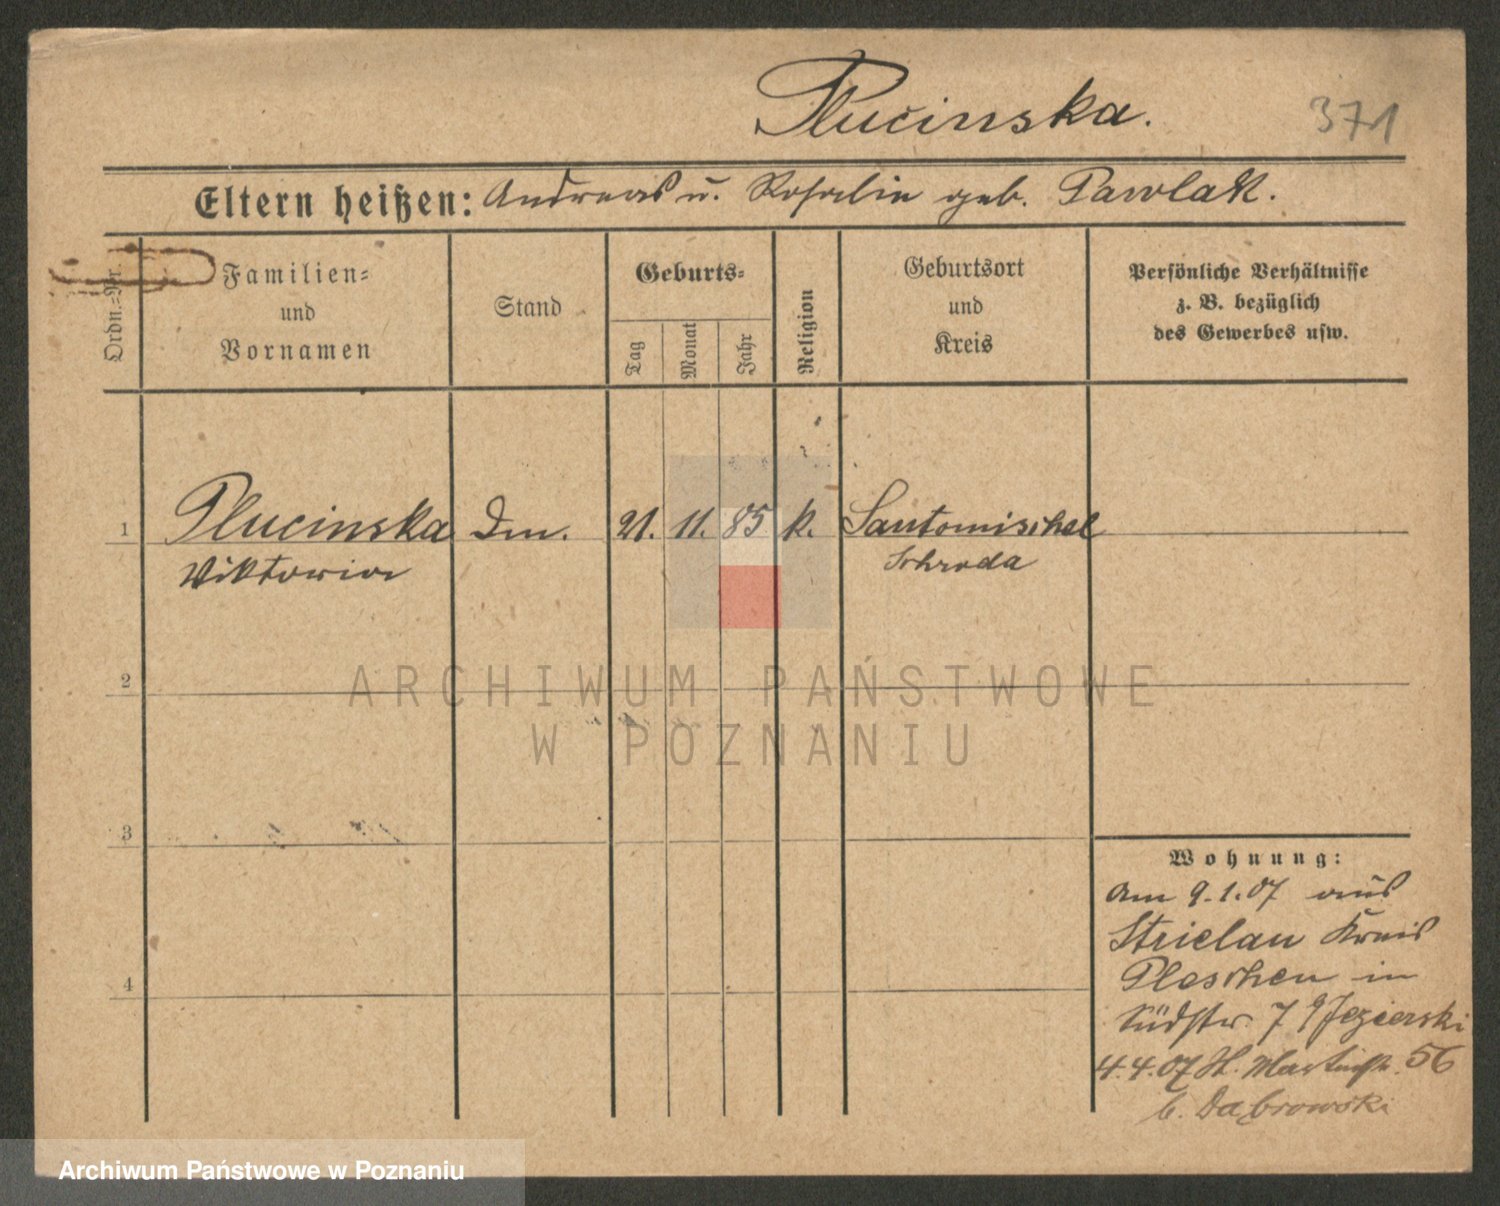 Plucinska.
371
Eltern heißen: Andreas u. Rosalie geb. Pawlak.
Ordn.=Nr.
Familien=
und
Vornamen
Stand
Geburts=
Tag
Monat
Jahr
Religion
Geburtsort
und
Kreis
Persönliche Verhältnisse
z. B. bezüglich
des Gewerbes usw.
1 Plucinska Dm. 21. 11. 85 k. Santomischel
Viktoria Schroda
2
ARCHIWUM PAŃSTWOWE
W POZNANIU
3
Wohnung:
Am 9.1.07 aus
Strielau Kreis
4
Pleschen in
Südstr. 7 Jezierski
4.4.07 St. Martinstr. 56
b. Dąbrowski
Archiwum Państwowe w Poznaniu